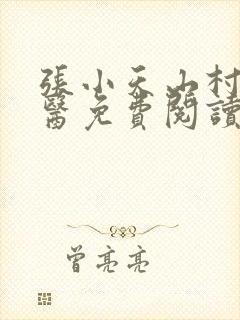 張小天山村
醫免費閱讀
曾亮亮